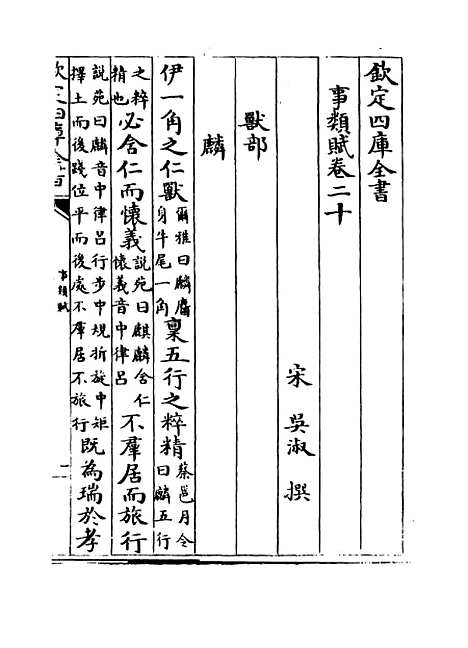 欽定四庫全書
事類賦卷二十
宋 吳淑 撰
獸部
麟
伊一角之仁獸爾雅曰麟麕身牛尾一角稟五行之粹精蔡邕月令曰麟五行
之粹精也必含仁而懷義說苑曰麒麟含仁懷義音中律吕不羣居而旅行
說苑曰麟音中律吕行步中規折旋中矩擇土而後踐位平而後處不羣居不旅行既為瑞於孝
欽定四庫全書
事類賦